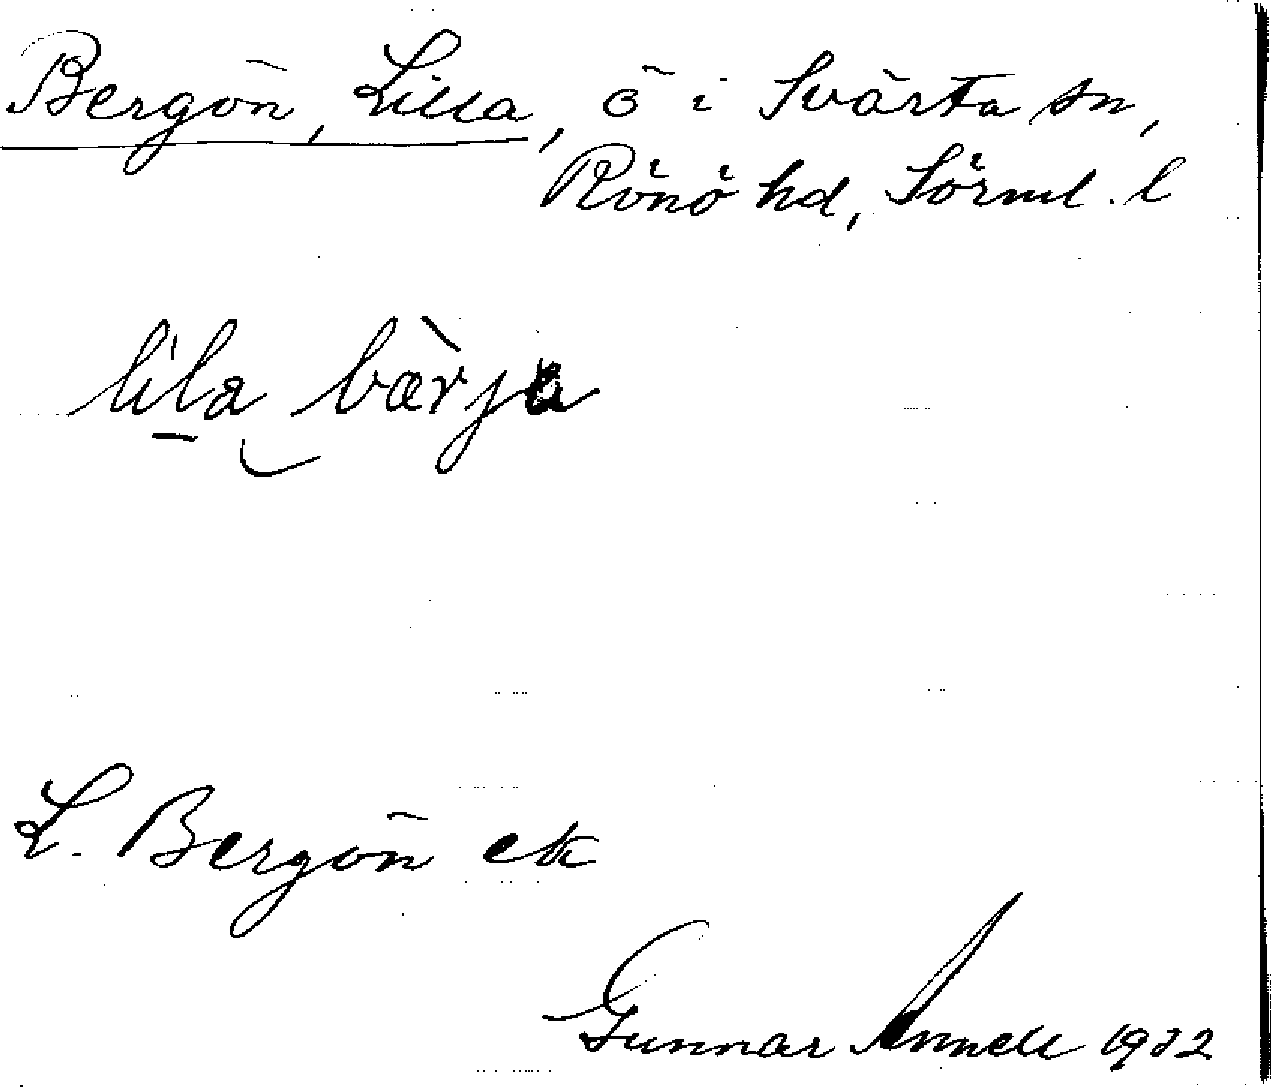 Bergön, Lilla, ö i Svärta sn,
Rönö hd, Sörml. l
lila bærja
L. Bergön ek
Gunnar Annell 1932